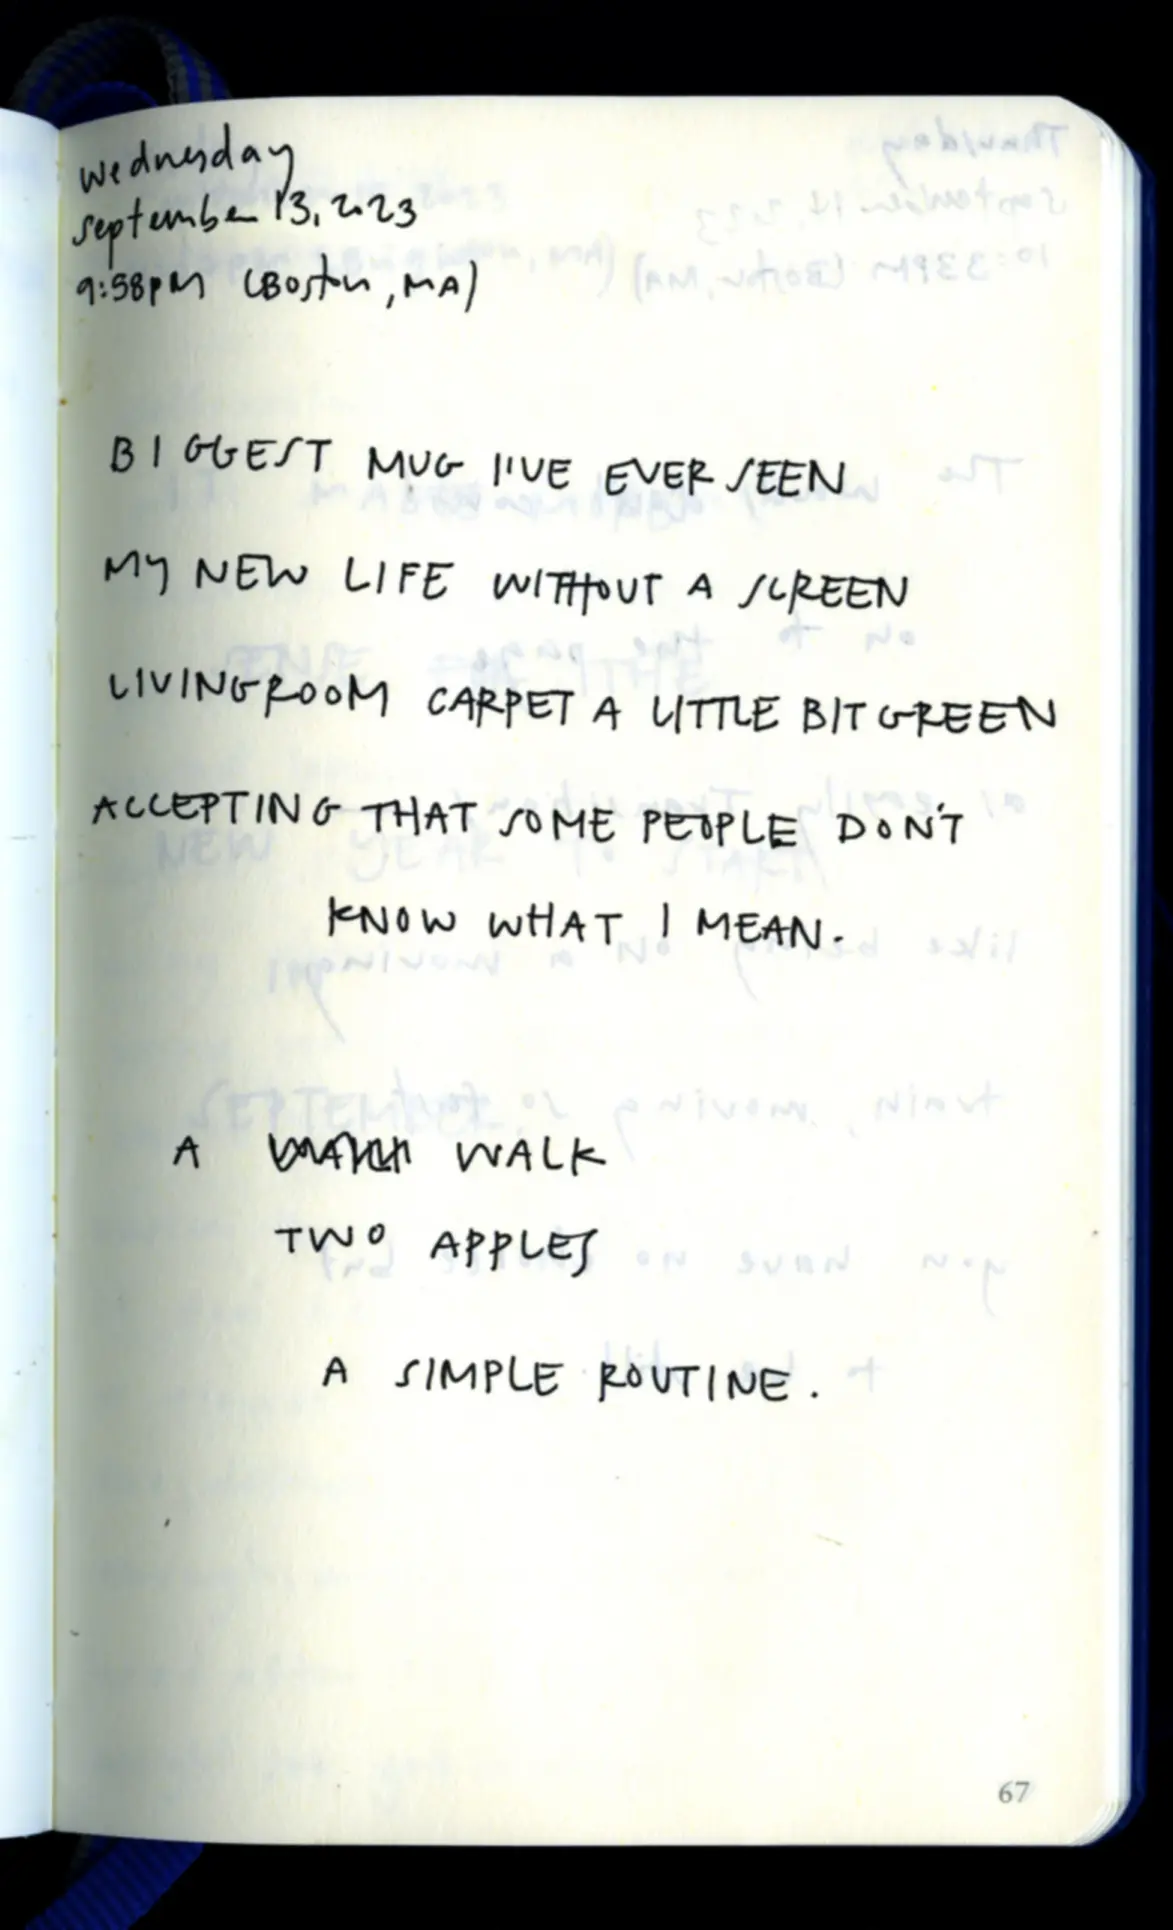 wednesday
september 13, 2023
9:58pm (Boston, MA)
BIGGEST MUG I'VE EVER SEEN
MY NEW LIFE WITHOUT A SCREEN
LIVINGROOM CARPET A LITTLE BIT GREEN
ACCEPTING THAT SOME PEOPLE DON'T
KNOW WHAT I MEAN.
A WALK
TWO APPLES
A SIMPLE ROUTINE.
67